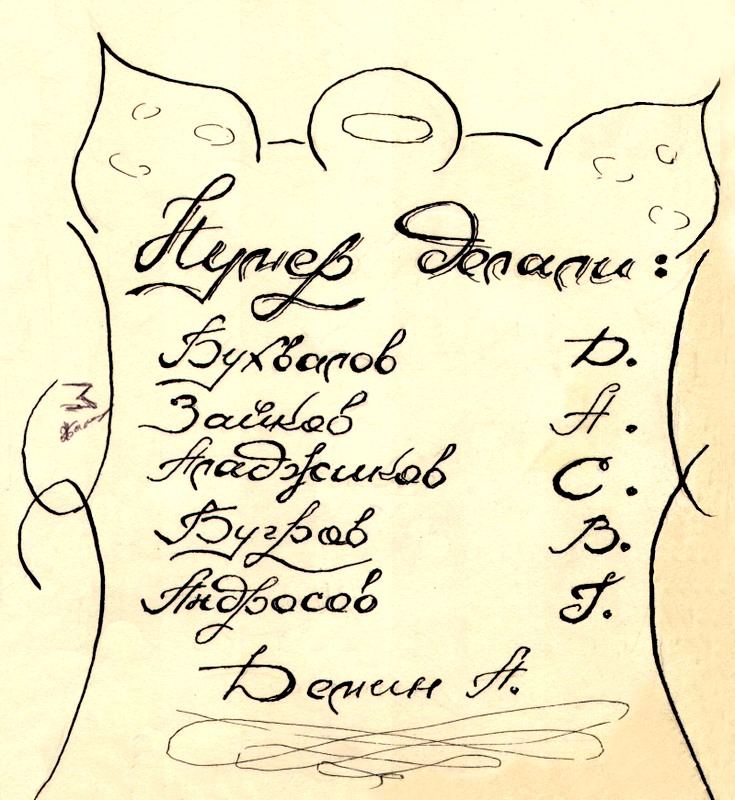 Нумер делали:
Бухвалов Д.
Зайков А.
Аладжиков С.
Бугров В.
Андросов Г.
Демин А.